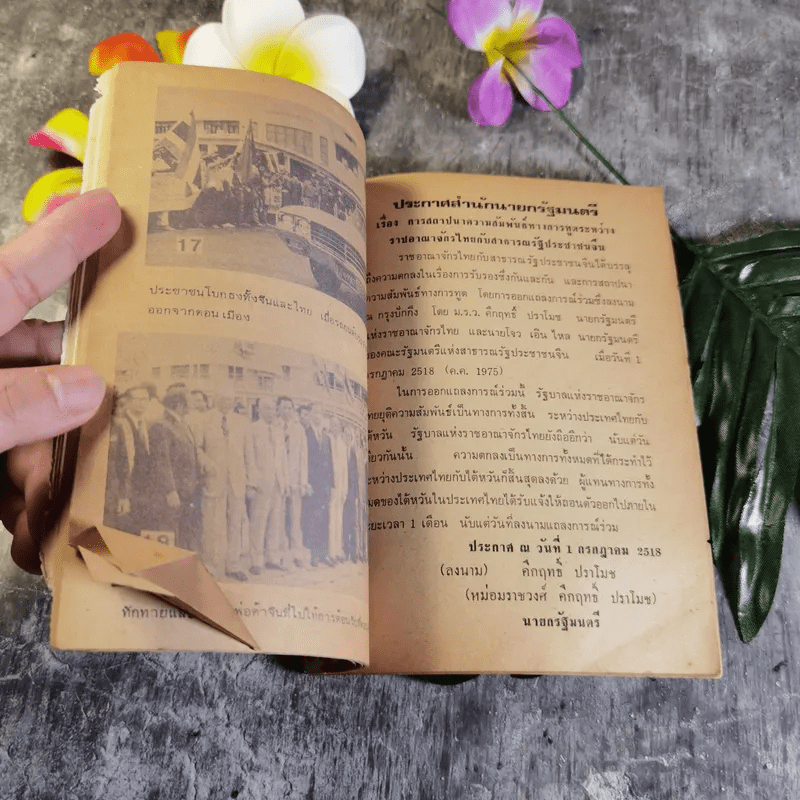 17
ประชาชนโบกธงทั้งจีนและไทย เมื่อรถยนต์
ออกจากดอนเมือง
18
ทักทายและ พ่อค้าจีนที่ไปให้การต้อนรับ
ประกาศสำนักนายกรัฐมนตรี
เรื่อง การสถาปนาความสัมพันธ์ทางการทูตระหว่าง
ราชอาณาจักรไทยกับสาธารณรัฐประชาชนจีน
ราชอาณาจักรไทยกับสาธารณรัฐประชาชนจีนได้บรรลุ
ถึงความตกลงในเรื่องการรับรองซึ่งกันและกัน และการสถาปนา
ความสัมพันธ์ทางการทูต โดยการออกแถลงการณ์ร่วมซึ่งลงนาม
ณ กรุงปักกิ่ง โดย ม.ร.ว. คึกฤทธิ์ ปราโมช นายกรัฐมนตรี
แห่งราชอาณาจักรไทย และนายโจว เอิน ไหล นายกรัฐมนตรี
ของคณะรัฐมนตรีแห่งสาธารณรัฐประชาชนจีน เมื่อวันที่ 1
กรกฎาคม 2518 (ค.ศ. 1975)
ในการออกแถลงการณ์ร่วมนี้ รัฐบาลแห่งราชอาณาจักร
ไทยยุติความสัมพันธ์เป็นทางการทั้งสิ้น ระหว่างประเทศไทยกับ
ไต้หวัน รัฐบาลแห่งราชอาณาจักรไทยยังถืออีกว่า นับแต่วัน
เดียวกันนั้น ความตกลงเป็นทางการทั้งหมดที่ได้กระทำไว้
ระหว่างประเทศไทยกับไต้หวันก็สิ้นสุดลงด้วย ผู้แทนทางการทั้ง
หมดของไต้หวันในประเทศไทยได้รับแจ้งให้ถอนตัวออกไปภายใน
ระยะเวลา 1 เดือน นับแต่วันที่ลงนามแถลงการณ์ร่วม
ประกาศ ณ วันที่ 1 กรกฎาคม 2518
(ลงนาม) คึกฤทธิ์ ปราโมช
(หม่อมราชวงศ์ คึกฤทธิ์ ปราโมช)
นายกรัฐมนตรี